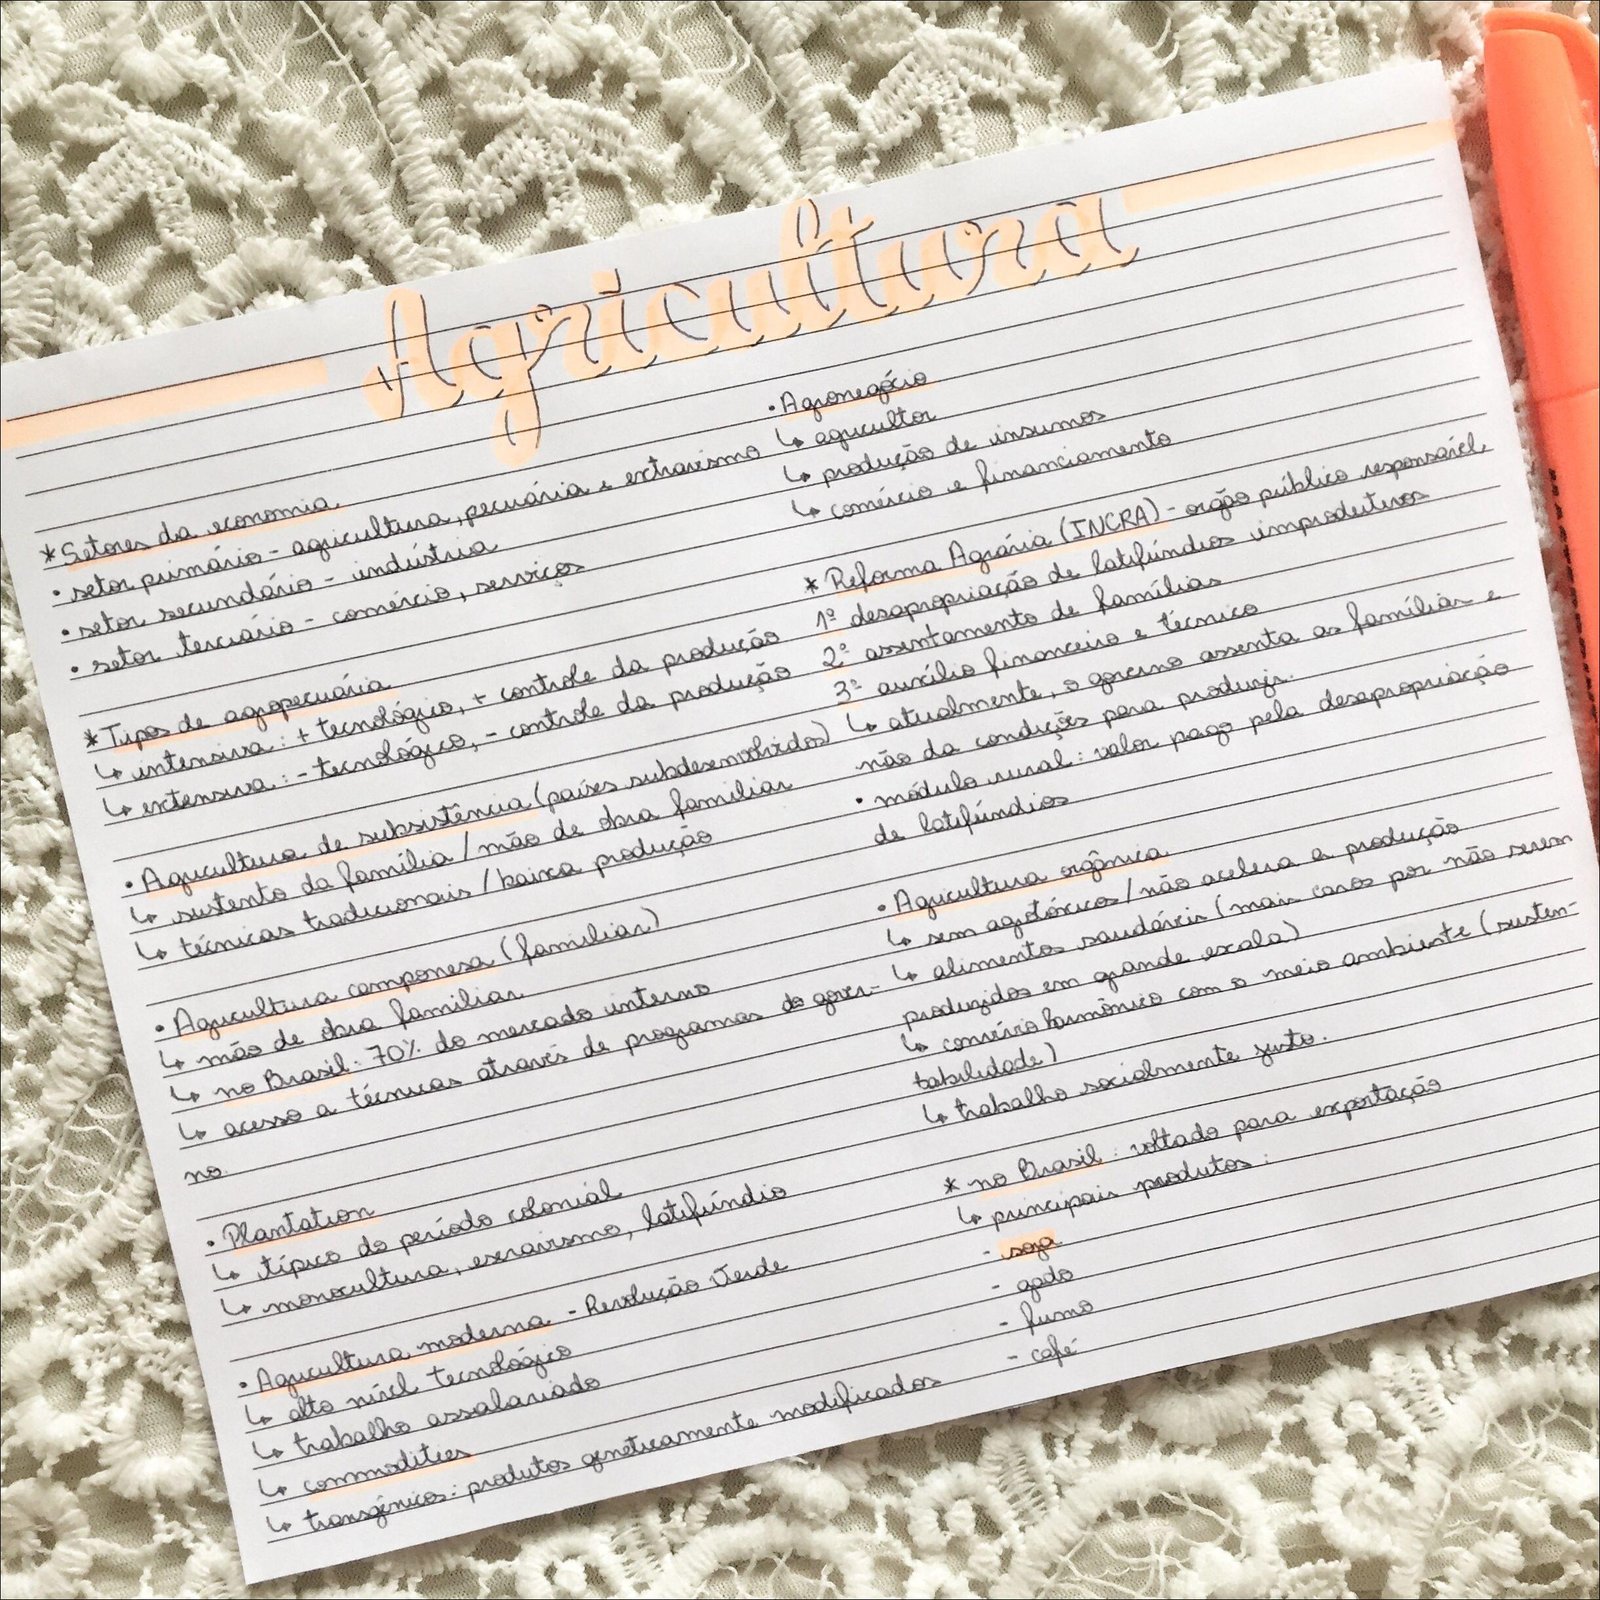 Agricultura
* Setores da economia
• setor primário - agricultura, pecuária e extravismo
• setor secundário - indústria
• setor terciário - comércio, serviços
* Tipos de agropecuária
↳ intensiva: + tecnológico, + controle da produção
↳ extensiva: - tecnológico, - controle da produção
• Agricultura de subsistência (países subdesenvolvidos)
↳ sustento da família / mão de obra familiar
↳ técnicas tradicionais / baixa produção
• Agricultura camponesa (familiar)
↳ mão de obra familiar
↳ no Brasil: 70% do mercado interno
↳ acesso a técnicas através de programas do gover-
no.
• Plantation
↳ típico do período colonial
↳ monocultura, escravismo, latifúndio
• Agricultura moderna - Revolução Verde
↳ alto nível tecnológico
↳ trabalho assalariado
↳ commodities
↳ transgênicos: produtos geneticamente modificados
• Agronegócio
↳ agricultor
↳ produção de insumos
↳ comércio e financiamento
* Reforma Agrária (INCRA) - orgão público responsável
1º desapropriação de latifúndios improdutivos
2º assentamento de famílias
3º auxílio financeiro e técnico
↳ atualmente, o governo assenta as famílias e
não da condições para produzir.
• módulo rural: valor pago pela desapropriação
de latifúndios
• Agricultura orgânica
↳ sem agrotóxicos / não acelera a produção
↳ alimentos saudáveis (mais caros por não serem
produzidos em grande escala)
↳ convívio harmônico com o meio ambiente (susten-
tabilidade)
↳ trabalho socialmente justo.
* no Brasil: voltado para exportação
↳ principais produtos:
- soja
- gado
- fumo
- café